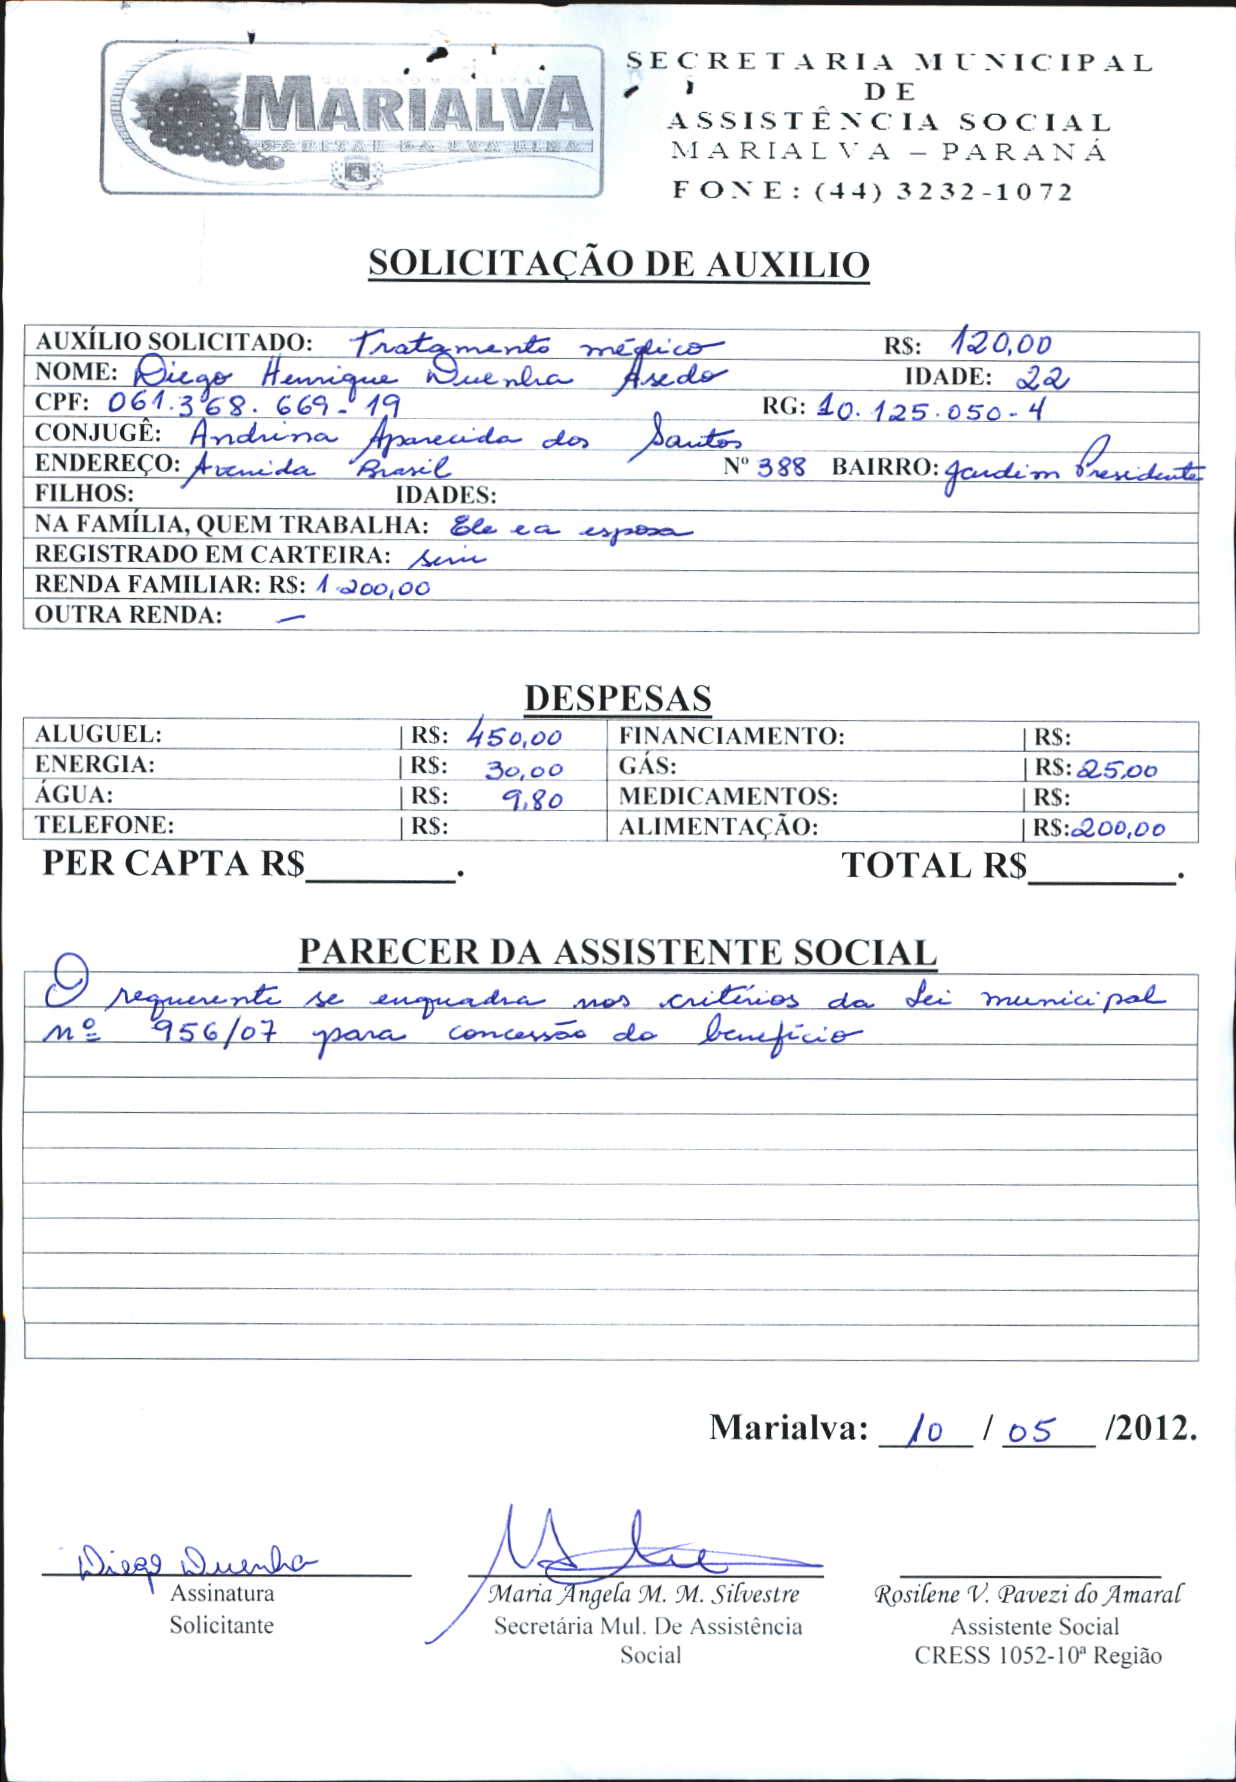 GOVERNO MUNICIPAL
MARIALVA
CAPITAL DA UVA FINA
SECRETARIA MUNICIPAL
DE
ASSISTÊNCIA SOCIAL
MARIALVA – PARANÁ
FONE: (44) 3232-1072
SOLICITAÇÃO DE AUXILIO
AUXÍLIO SOLICITADO: Tratamento médico R$: 120,00
NOME: Diego Henrique Duenha Asedo IDADE: 22
CPF: 061.368.669-19 RG: 10.125.050-4
CONJUGÊ: Andrina Aparecida dos Santos
ENDEREÇO: Avenida Brasil Nº 388 BAIRRO: Jardim Presidente
FILHOS: IDADES:
NA FAMÍLIA, QUEM TRABALHA: Ele e a esposa
REGISTRADO EM CARTEIRA: sim
RENDA FAMILIAR: R$: 1.200,00
OUTRA RENDA: –
DESPESAS
ALUGUEL: | R$: 450,00 FINANCIAMENTO: | R$:
ENERGIA: | R$: 30,00 GÁS: | R$: 25,00
ÁGUA: | R$: 9,80 MEDICAMENTOS: | R$:
TELEFONE: | R$: ALIMENTAÇÃO: | R$: 200,00
PER CAPTA R$________. TOTAL R$________.
PARECER DA ASSISTENTE SOCIAL
O requerente se enquadra nos critérios da Lei municipal
nº 956/07 para concessão do benefício
Marialva: 10 / 05 /2012.
Diego Duenha
Assinatura Maria Angela M. M. Silvestre Rosilene V. Pavezi do Amaral
Solicitante Secretária Mul. De Assistência Assistente Social
Social CRESS 1052-10ª Região